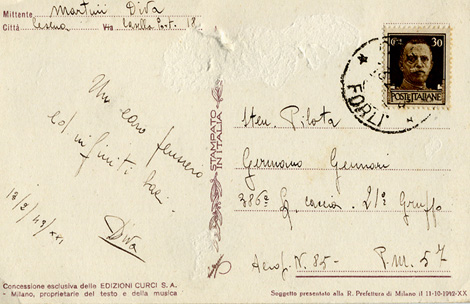 Mittente Martini Diva
Città Cesena Via Casella Post. 18
Un caro pensiero
ed infiniti baci
Diva
13/2/43/XXI
STAMPATO
IN ITALIA
30
POSTE ITALIANE
FORLÌ
Sten. Pilota
Germano Gennari
386ª Sq. Caccia - 21º Gruppo
Aerop. N. 85 - P.M. 57
Concessione esclusiva delle EDIZIONI CURCI S. A.
- Milano, proprietarie del testo e della musica
Soggetto presentato alla R. Prefettura di Milano il 11-10-1942-XX